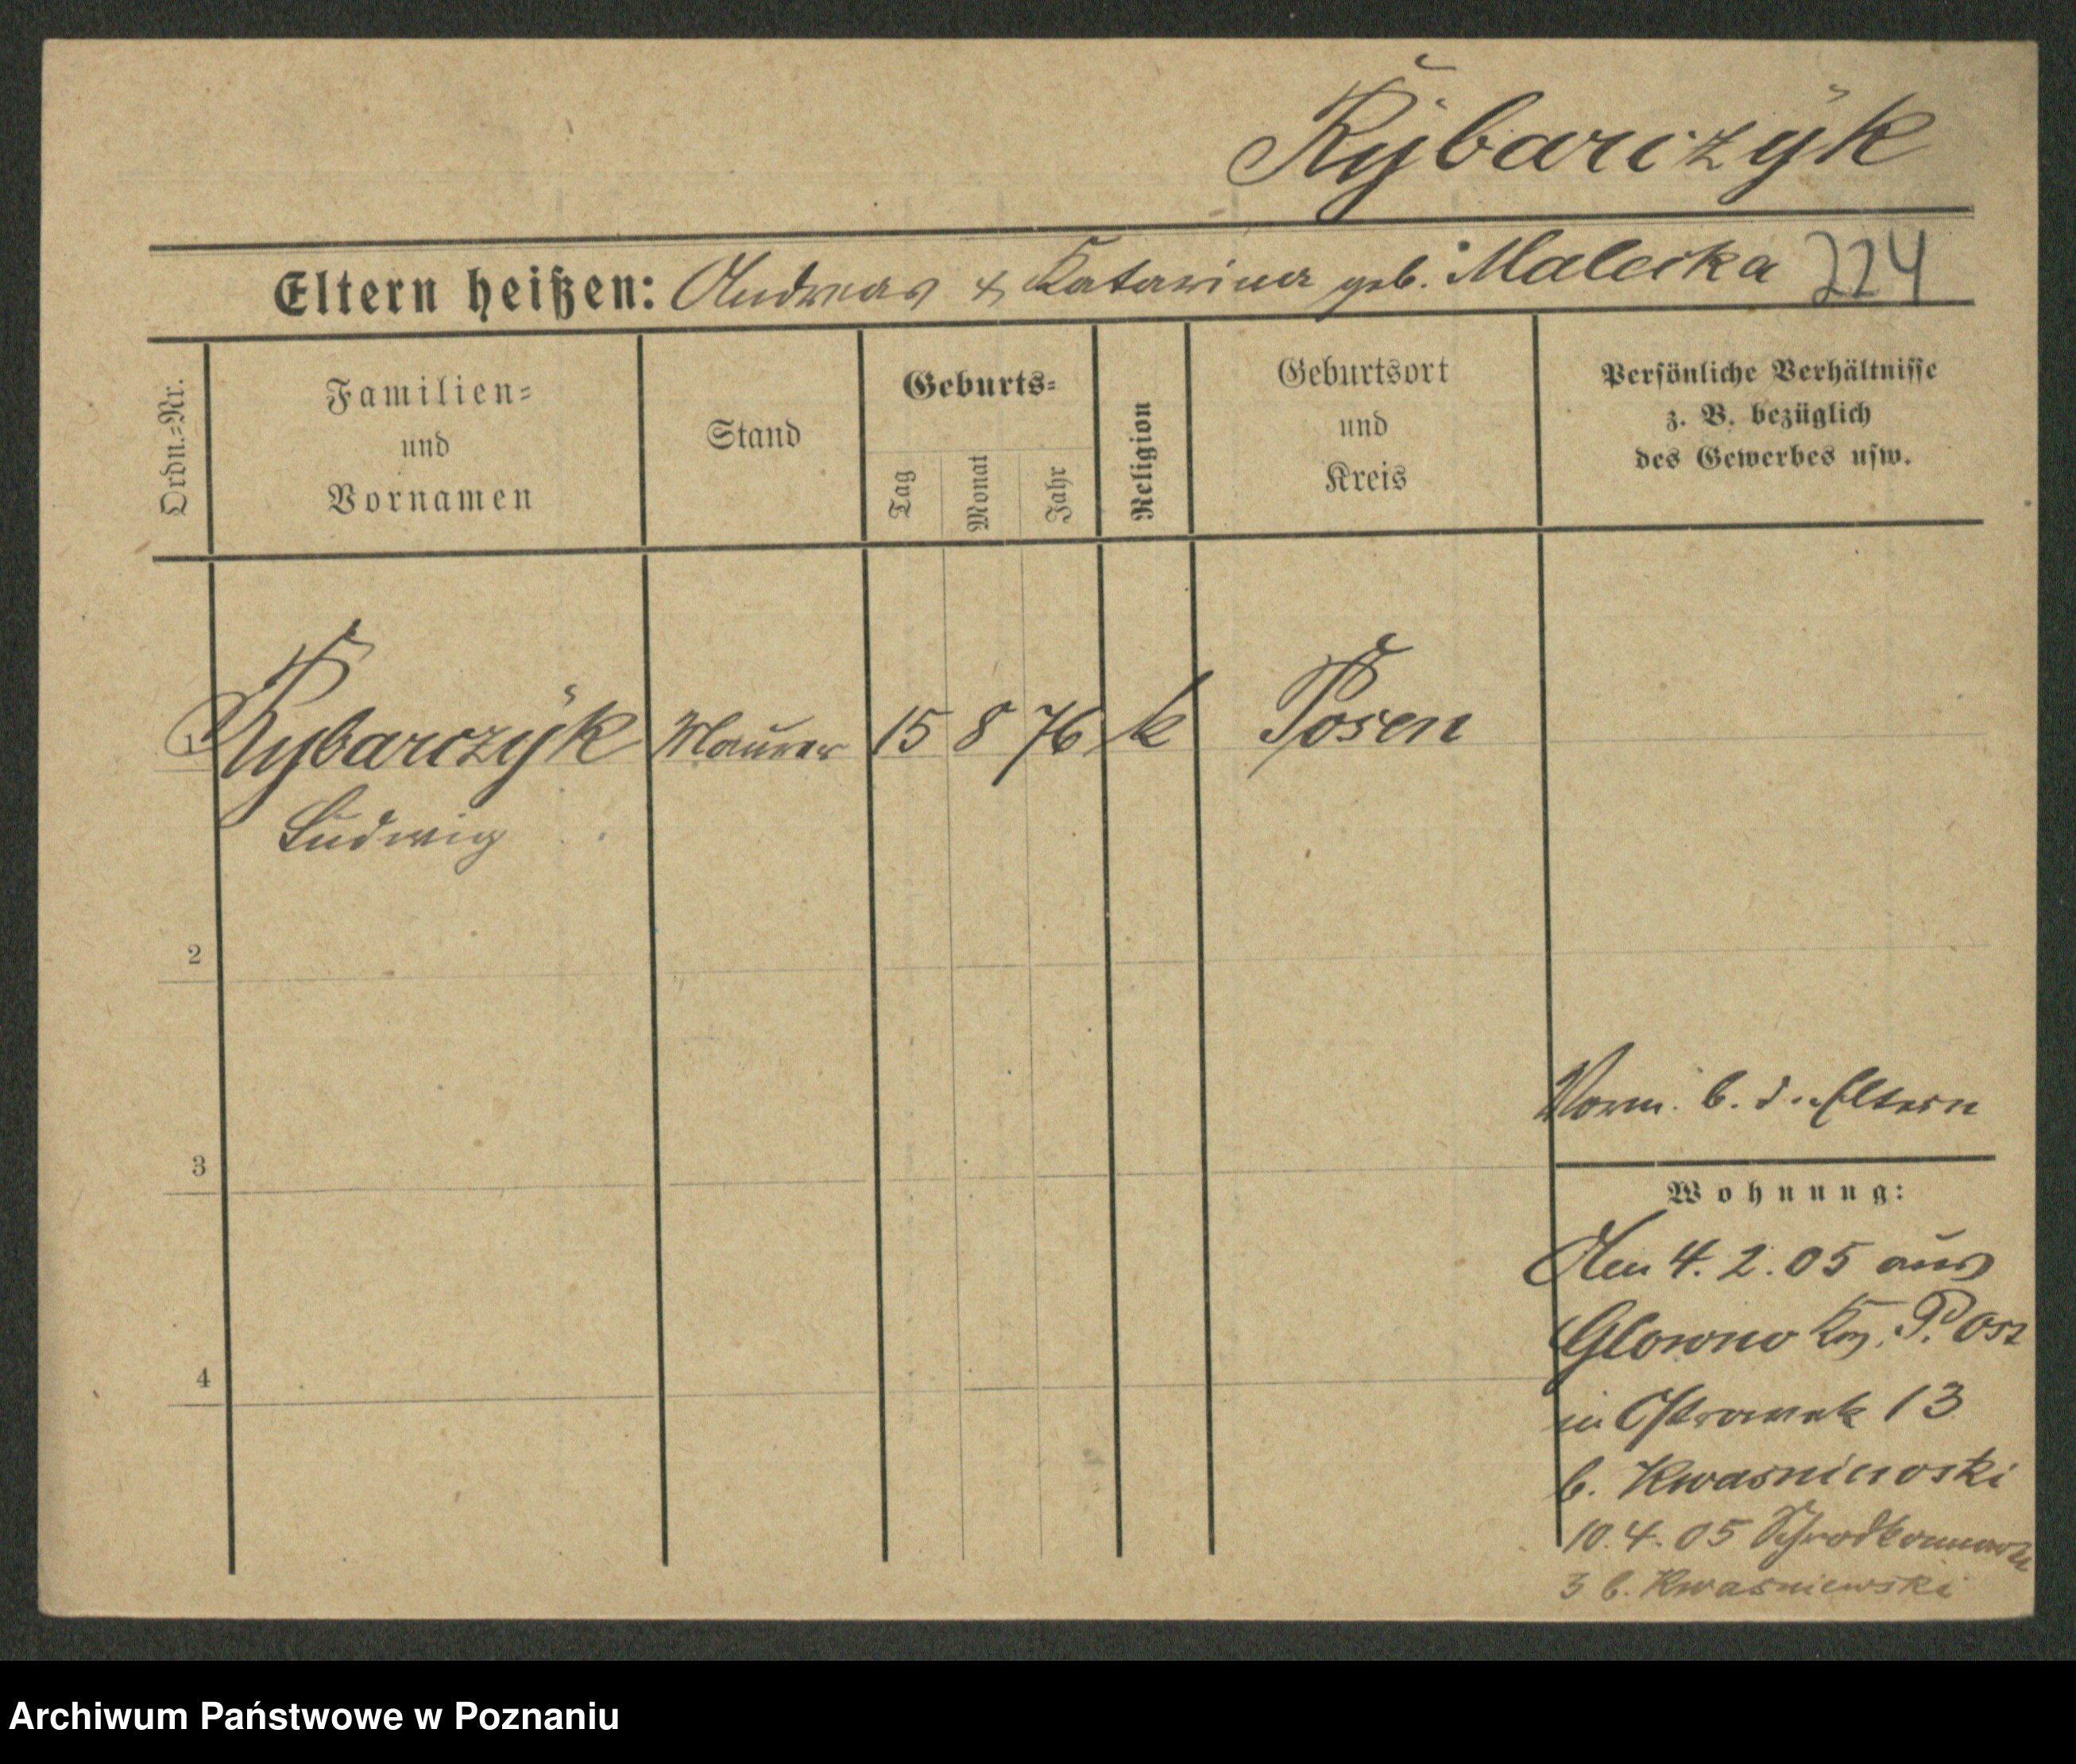 Rÿbarczÿk
Eltern heißen: Andreas & Katarina geb. Malecka 224
Ordn.-Nr.
Familien-
und
Vornamen
Stand
Geburts-
Tag
Monat
Jahr
Religion
Geburtsort
und
Kreis
Persönliche Verhältnisse
z. B. bezüglich
des Gewerbes usw.
1 Rybarczÿk Maurer 15 8 76 k Posen
Ludwig
2
3
4
Vorm. b. d. Eltern
Wohnung:
Am 4. 2. 05 aus
Glowno P. Ost
in Ostrowek 13
b. Kwasniewski
10. 4. 05
3 b. Kwasniewski
Archiwum Państwowe w Poznaniu